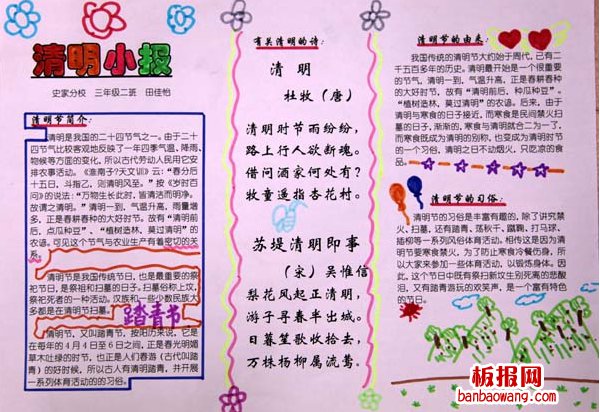 清明小报
史家分校 三年级二班 田佳怡
清明节简介:
清明是我国的二十四节气之一。由于二十
四节气比较客观地反映了一年四季气温、降雨、
物候等方面的变化,所以古代劳动人民用它安
排农事活动。《淮南子?天文训》云:“春分后
十五日,斗指乙,则清明风至。”按《岁时百
问》的说法:“万物生长此时,皆清洁而明净。
故谓之清明。”清明一到,气温升高,雨量增
多,正是春耕春种的大好时节。故有“清明前
后,点瓜种豆”、“植树造林,莫过清明”的
农谚。可见这个节气与农业生产有着密切的关
系。
清明节是我国传统节日,也是最重要的祭
祀节日,是祭祖和扫墓的日子。扫墓俗称上坟,
祭祀死者的一种活动。汉族和一些少数民族大
多都是在清明节扫墓。
踏青节
清明节,又叫踏青节,按阳历来说,它是
在每年的4月4日至6日之间,正是春光明媚
草木吐绿的时节,也正是人们春游(古代叫踏
青)的好时候,所以古人有清明踏青,并开展
一系列体育活动的的习俗。
有关清明的诗:
清 明
杜牧(唐)
清明时节雨纷纷,
路上行人欲断魂。
借问酒家何处有?
牧童遥指杏花村。
苏堤清明即事
(宋)吴惟信
梨花风起正清明,
游子寻春半出城。
日暮笙歌收拾去,
万株杨柳属流莺。
清明节的由来:
我国传统的清明节大约始于周代,已有二
千五百多年的历史。清明最开始是一个很重要
的节气,清明一到,气温升高,正是春耕春种
的大好时节,故有“清明前后,种瓜种豆”。
“植树造林,莫过清明”的农谚。后来,由于
清明与寒食的日子接近,而寒食是民间禁火扫
墓的日子,渐渐的,寒食与清明就合二为一了,
而寒食既成为清明的别称,也变成为清明时节
的一个习俗,清明之日不动烟火,只吃凉的食
品。
清明节的习俗:
清明节的习俗是丰富有趣的,除了讲究禁
火、扫墓,还有踏青、荡秋千、蹴鞠、打马球、
插柳等一系列风俗体育活动。相传这是因为清明
节要寒食禁火,为了防止寒食冷餐伤身,所
以大家来参加一些体育活动,以锻炼身体。因
此,这个节日中既有祭扫新坟生别死离的悲酸
泪,又有踏青游玩的欢笑声,是一个富有特色
的节日。
板报网
banbaowang.com